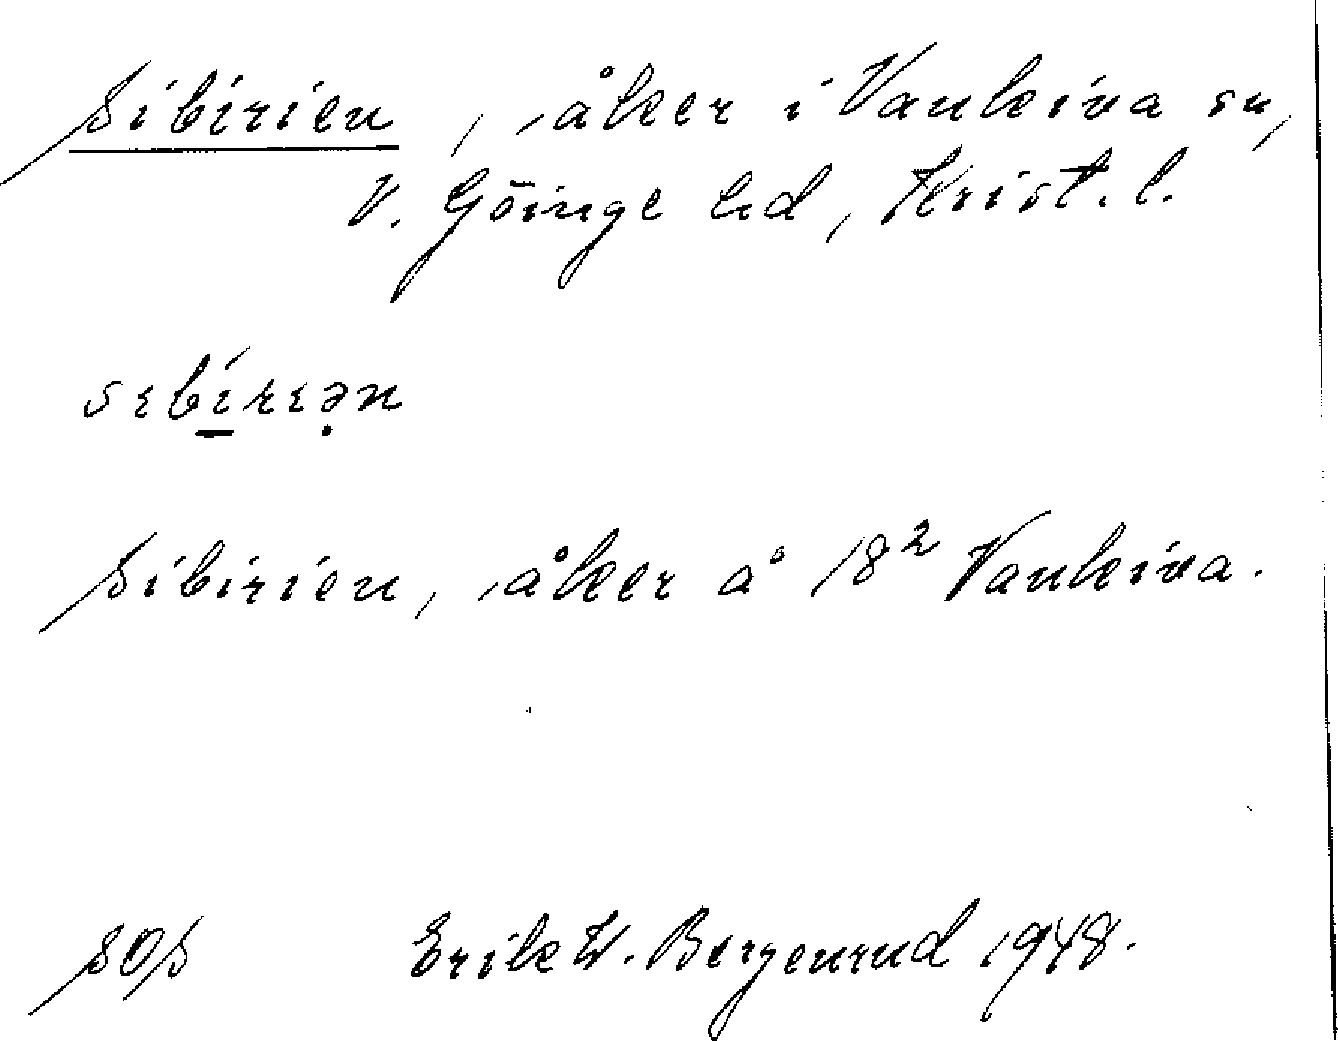 Sibirien, åker i Vankiva sn,
V. Göinge hd, Krist. l.
sɛbi̱rɛə̣n
Sibirien, åker å 18² Vankiva.
SOS Erik W. Bergenrud 1948.